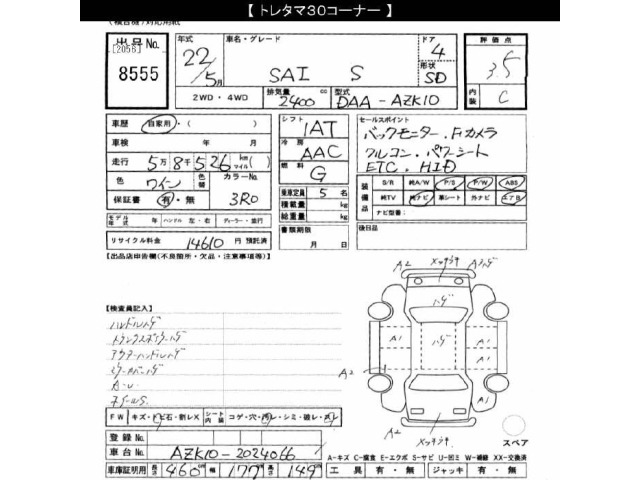 【 トレタマ30コーナー 】
出品No.
[2056]
8555
年式
22/5月
車名・グレード
SAI S
ドア
4
形状
SD
評価点
3.5
内装
C
2WD・4WD
排気量
2400 cc
型式
DAA-AZK10
車歴 自家用・( )
車検 年 月
走行 5万8千526 km マイル ( )
色 ワイン 色替 カラーNo. 3R0
保証書 有・無
モデル年式 年 ハンドル 左・右 ディーラー・並行
リサイクル料金 14610 円 預託済
シフト
IAT
冷房
AAC
燃料
G
乗車定員 5 名
積載量 kg
総重量 kg
書類期限
月 日
セールスポイント
バックモニター・Fカメラ
クルコン・パワーシート
ETC・HID
装備品
S/R 純A/W P/S P/W ABS
純TV 純ナビ 革シート 外ナビ エアB
ナビ型番:
後日品
【出品店申告欄(不良箇所・欠品・注意事項等)】
【検査員記入】
ハンドルハゲ
アウターハンドルハゲ
FW キズ・トビ石・割レX シート内装 コゲ・穴・汚レ・シミ・破レ・スレ
登録No.
車台No. AZK10-2024066
車庫証明用 長さ 460 cm 幅 177 高さ 149 cm
A2
A1
A1
A1
A1
A2
A2
ハゲ
ハゲ
スペア
A-キズ C-腐食 E-エクボ S-サビ U-凹ミ W-補修 XX-交換済
工具 有・無 ジャッキ 有・無